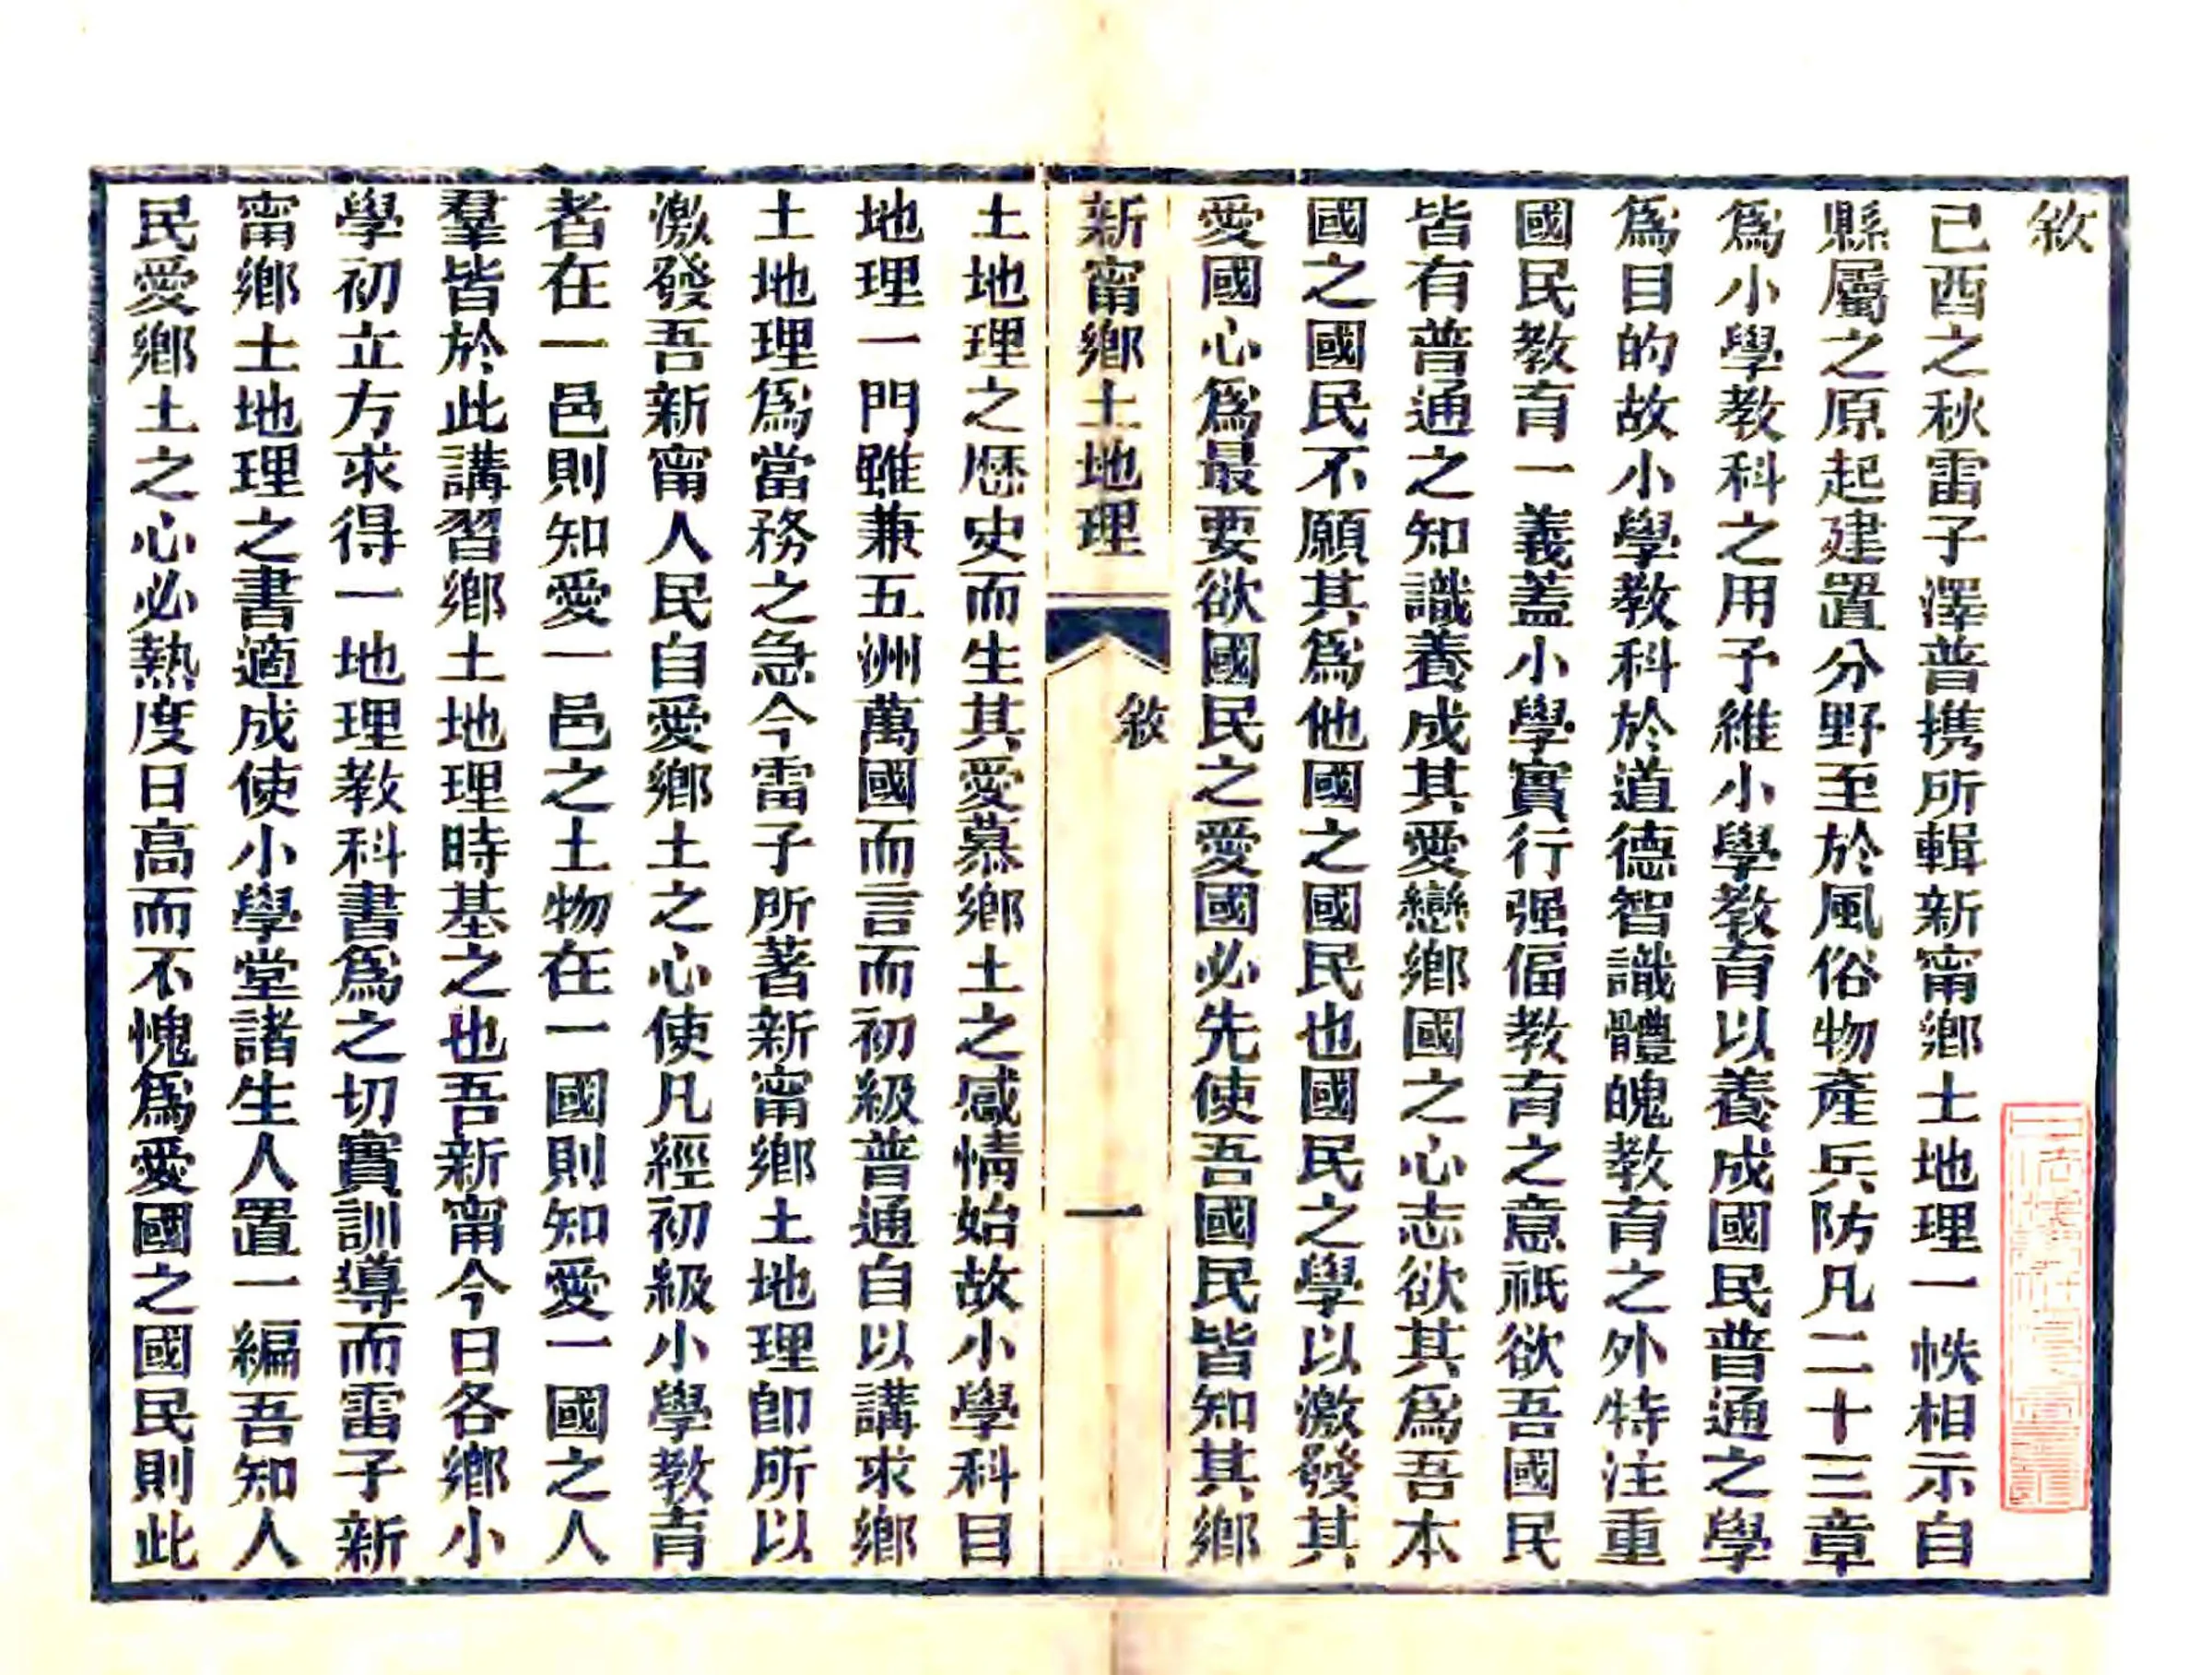 敘
己酉之秋雷子澤普携所輯新甯鄉土地理一帙相示自
縣屬之原起建置分野至於風俗物產兵防凡二十三章
爲小學教科之用予維小學教育以養成國民普通之學
爲目的故小學教科於道德智識體魄教育之外特注重
國民教育一義蓋小學實行强偪教育之意祇欲吾國民
皆有普通之知識養成其愛戀鄉國之心志欲其爲吾本
國之國民不願其爲他國之國民也國民之學以激發其
愛國心爲最要欲國民之愛國必先使吾國民皆知其鄉
新甯鄉土地理
敘
一
土地理之歷史而生其愛慕鄉土之感情始故小學科目
地理一門雖兼五洲萬國而言而初級普通自以講求鄉
土地理爲當務之急今雷子所著新甯鄉土地理卽所以
激發吾新甯人民自愛鄉土之心使凡經初級小學教育
者在一邑則知愛一邑之土物在一國則知愛一國之人
羣皆於此講習鄉土地理時基之也吾新甯今日各鄉小
學初立方求得一地理教科書爲之切實訓導而雷子新
甯鄉土地理之書適成使小學堂諸生人置一編吾知人
民愛鄉土之心必熱度日高而不愧爲愛國之國民則此